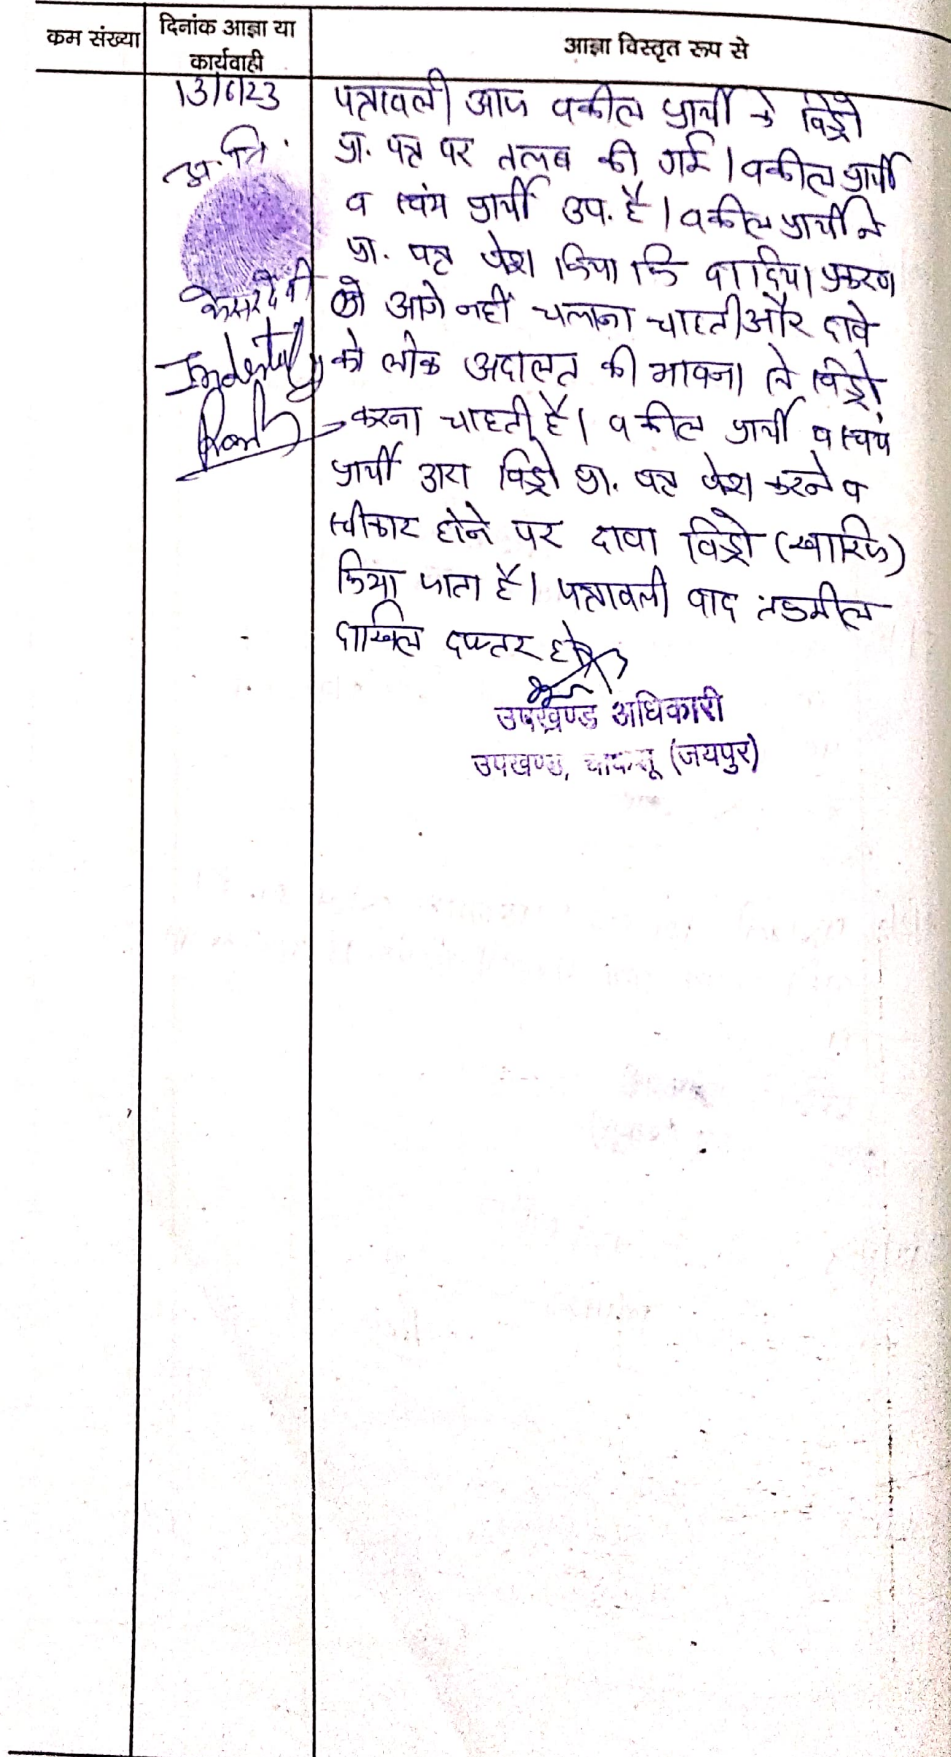 कम संख्या
दिनांक आज्ञा या
कार्यवाही
आज्ञा विस्तृत रूप से
13/6/23
अ. नि.
केसर देवी
Indentify
पत्रावली आज वकील प्रार्थी के विड्रो
प्रा. पत्र पर तलब की गई। वकील प्रार्थी
व स्वंय प्रार्थी उप. है। वकील प्रार्थी ने
प्रा. पत्र पेश किया कि वादिया प्रकरण
को आगे नहीं चलाना चाहती और दावे
को लोक अदालत की भावना से विड्रो
करना चाहती है। वकील प्रार्थी व स्वयं
प्रार्थी द्वारा विड्रो प्रा. पत्र पेश करने व
स्वीकार होने पर दावा विड्रो (खारिज)
किया जाता है। पत्रावली बाद तकमील
दाखिल दफ्तर हो
उपखण्ड अधिकारी
उपखण्ड, चाकसू (जयपुर)